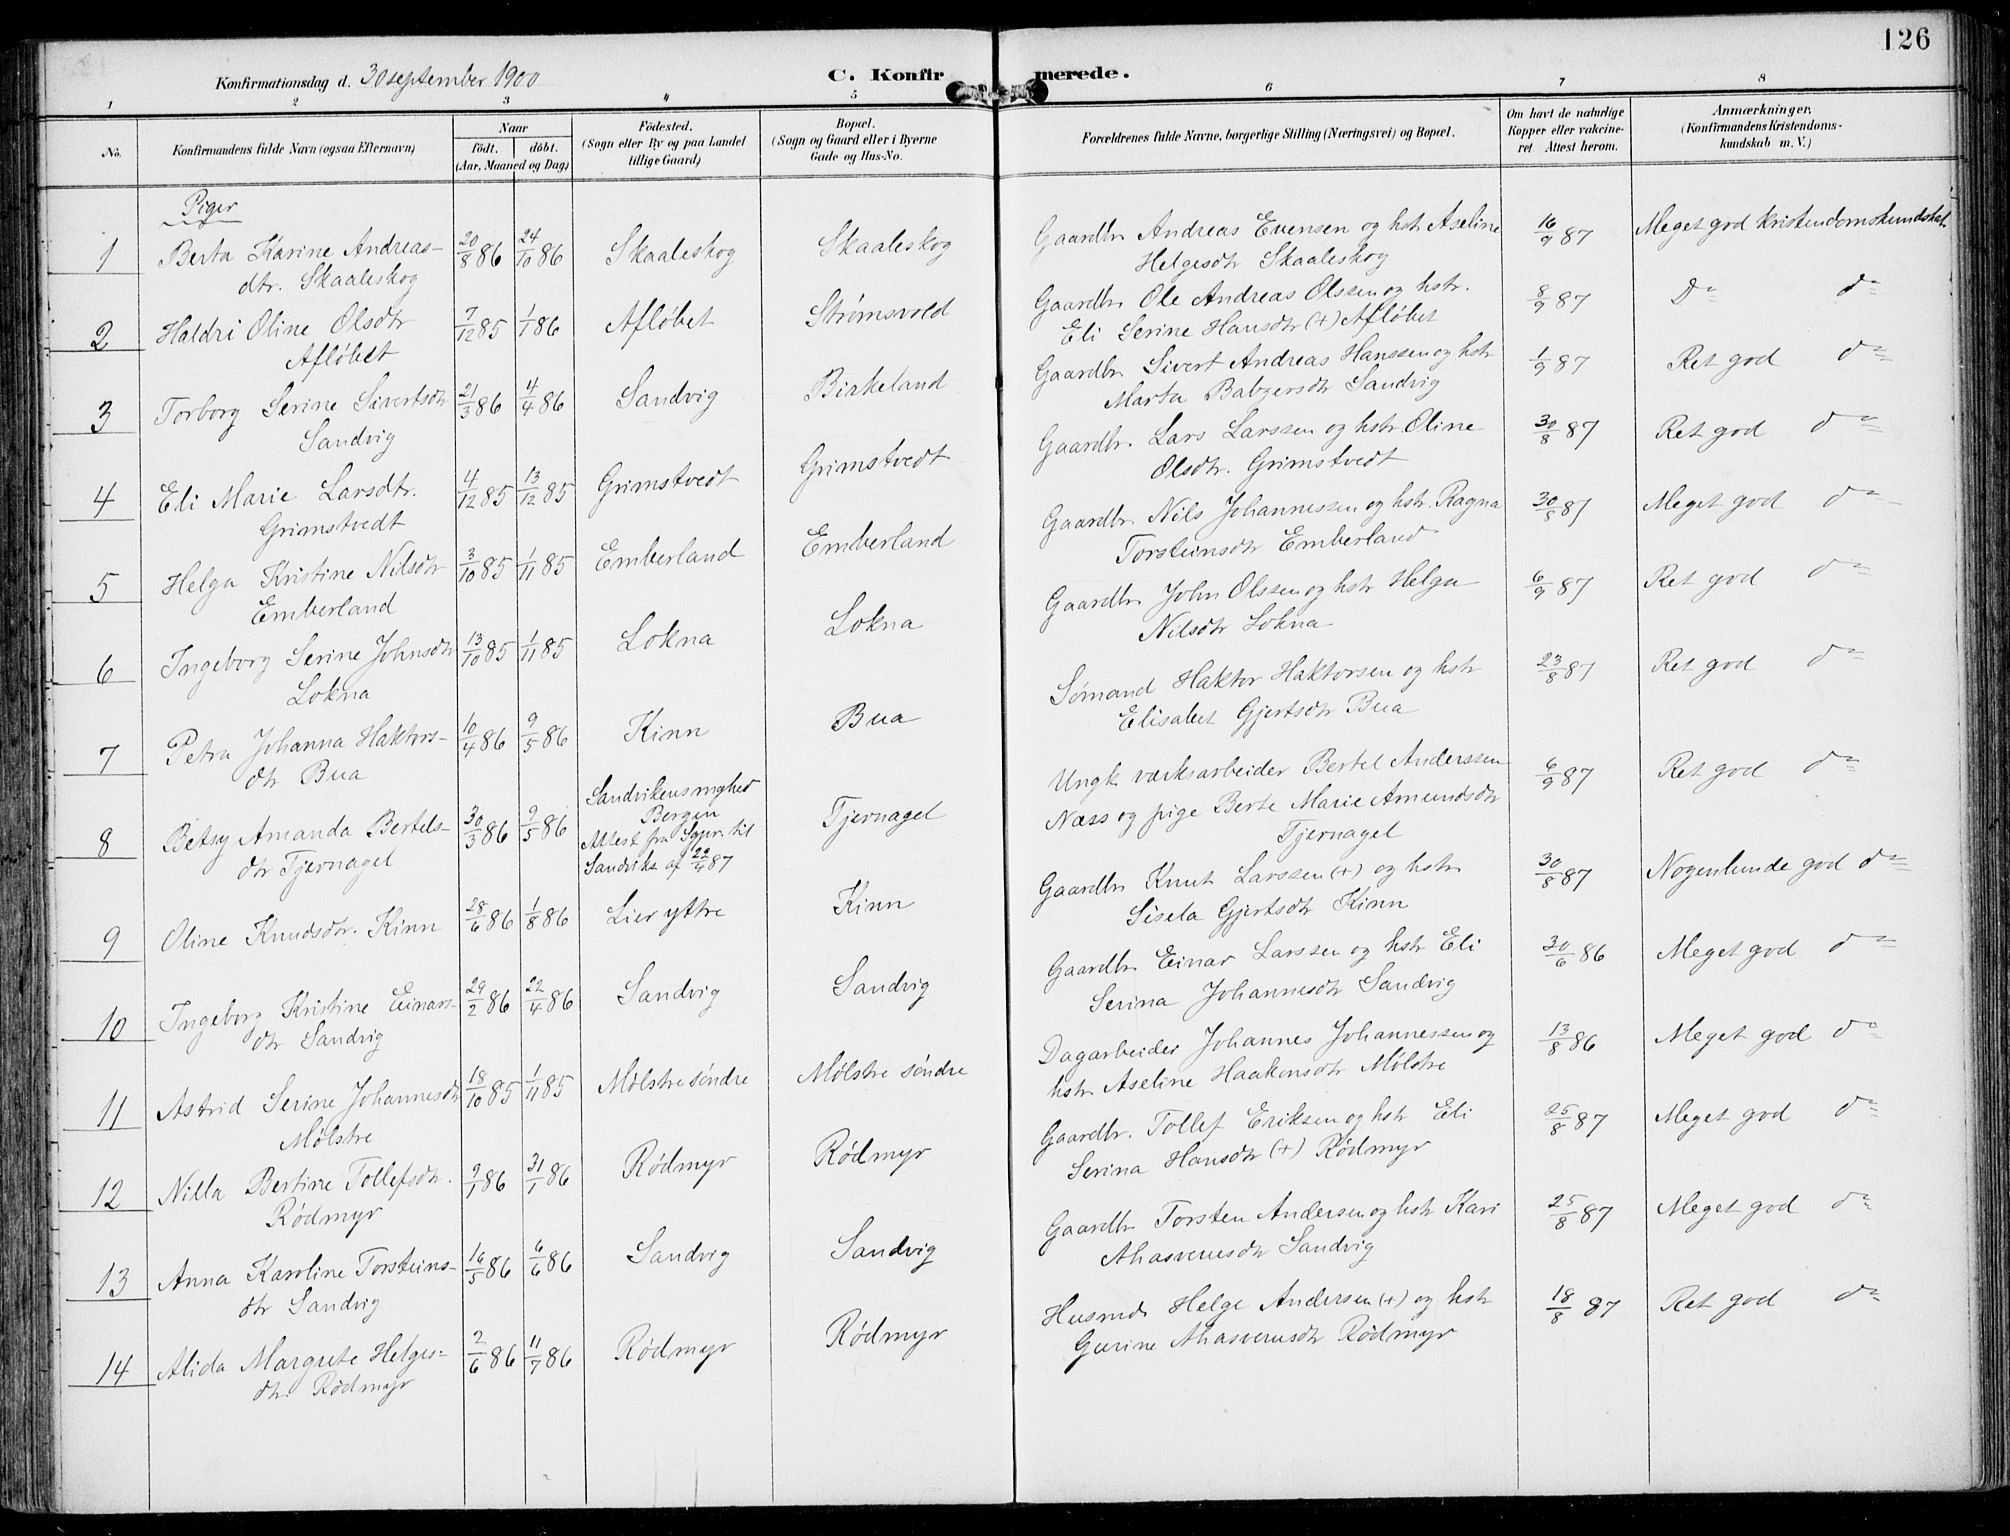 126
Konfirmationsdag d. 30 september 1900
C. Konfirmerede.
1 2 3 4 5 6 7 8
No.
Konfirmandens fulde Navn (ogsaa Efternavn)
Naar
födt. döbt.
(Aar, Maaned og Dag)
Födested.
(Sogn eller By og paa Landet
tillige Gaard)
Bopæl.
(Sogn og Gaard eller i Byerne
Gade og Hus-No.
Forældrenes fulde Navne, borgerlige Stilling (Næringsvei) og Bopæl.
Om havt de naturlige
Kopper eller vakcine-
ret. Attest herom.
Anmærkninger.
(Konfirmandens Kristendoms-
kundskab m. V.)
Piger
1 Berta Karine Andreas- 20/8 86 24/10 86 Skaaleskog Skaaleskog Gaardbr. Andreas Evensen og hstr Aseline 16/9 87 Meget god kristendomskundskab
dtr. Skaaleskog Helgesdtr Skaaleskog
2 Haldri Oline Olsdtr 7/12 85 1/1 86 Afløbet Strømsvold Gaardbr. Ole Andreas Olssen og hstr. 8/9 87 Do do
Afløbet Eli Serine Hansdtr (+) Afløbet
3 Torborg Serine Sivertsdtr 21/3 86 4/4 86 Sandvig Birkeland Gaardbr. Sivert Andreas Hanssen og hstr 1/9 87 Ret god do
Sandvig Marta Babzersdtr Sandvig
4 Eli Marie Larsdtr. 4/12 85 13/12 85 Grimstvedt Grimstvedt Gaardbr. Lars Larssen og hstr. Oline 30/8 87 Ret god do
Grimstvedt Olsdtr. Grimstvedt
5 Helga Kristine Nilsdtr 3/10 85 1/11 85 Emberland Emberland Gaardbr. Nils Johannessen og hstr. Ragna 30/8 87 Meget god do
Emberland Torsteinsdtr Emberland
6 Ingeborg Serine Johnsdtr 13/10 85 1/11 85 Lokna Lokna Gaardbr. John Olssen og hstr Helga 6/9 87 Ret god do
Lokna Nilsdtr Lokna
7 Petra Johanna Haktors- 10/4 86 9/5 86 Kinn Bua Sømand Haktor Haktorsen og hstr 23/8 87 Ret god do
dtr Bua Elisabet Gjertsdtr Bua
8 Betsy Amanda Bertels- 30/3 86 9/5 86 Sandvikens sogn Tjernagel Ungk. værksarbeider Bertel Anderssen 6/9 87 Ret god do
dtr Tjernagel Bergen Næss og pige Berte Marie Amundsdtr
Attest fra Sgpr. til Tjernagel
Sandvike af 22/4 87
9 Oline Knudsdtr. Kinn 28/6 86 1/8 86 Lier yttre Kinn Gaardbr. Knut Larssen (+) og hstr 30/8 87 Nogenlunde god do
Sisela Gjertsdtr Kinn
10 Ingeborg Kristine Einars- 29/2 86 22/4 86 Sandvig Sandvig Gaardbr. Einar Larssen og hstr Eli 30/6 86 Meget god do
dtr Sandvig Serina Johannesdtr Sandvig
11 Astrid Serine Johannesdtr 18/10 85 1/11 85 Mølstre søndre Mølstre søndre Dagarbeider Johannes Johannessen og 13/8 86 Meget god do
Mølstre hstr Aseline Haakensdtr Mølstre
12 Nilla Bertine Tollefsdtr. 9/1 86 31/1 86 Rødmyr Rødmyr Gaardbr. Tollef Eriksen og hstr Eli 25/8 87 Meget god do
Rødmyr Serina Hansdtr (+) Rødmyr
13 Anna Karoline Torsteins- 16/5 86 6/6 86 Sandvig Sandvig Gaardbr Torsten Andersen og hstr Kari 25/8 87 Meget god do
dtr Sandvig Ahasverusdtr Sandvig
14 Alida Margrete Helges- 2/6 86 11/7 86 Rødmyr Rødmyr Husmd. Helge Andersen (+) og hstr 18/8 87 Ret god do
dtr. Rødmyr Gurine Ahasverusdtr Rødmyr